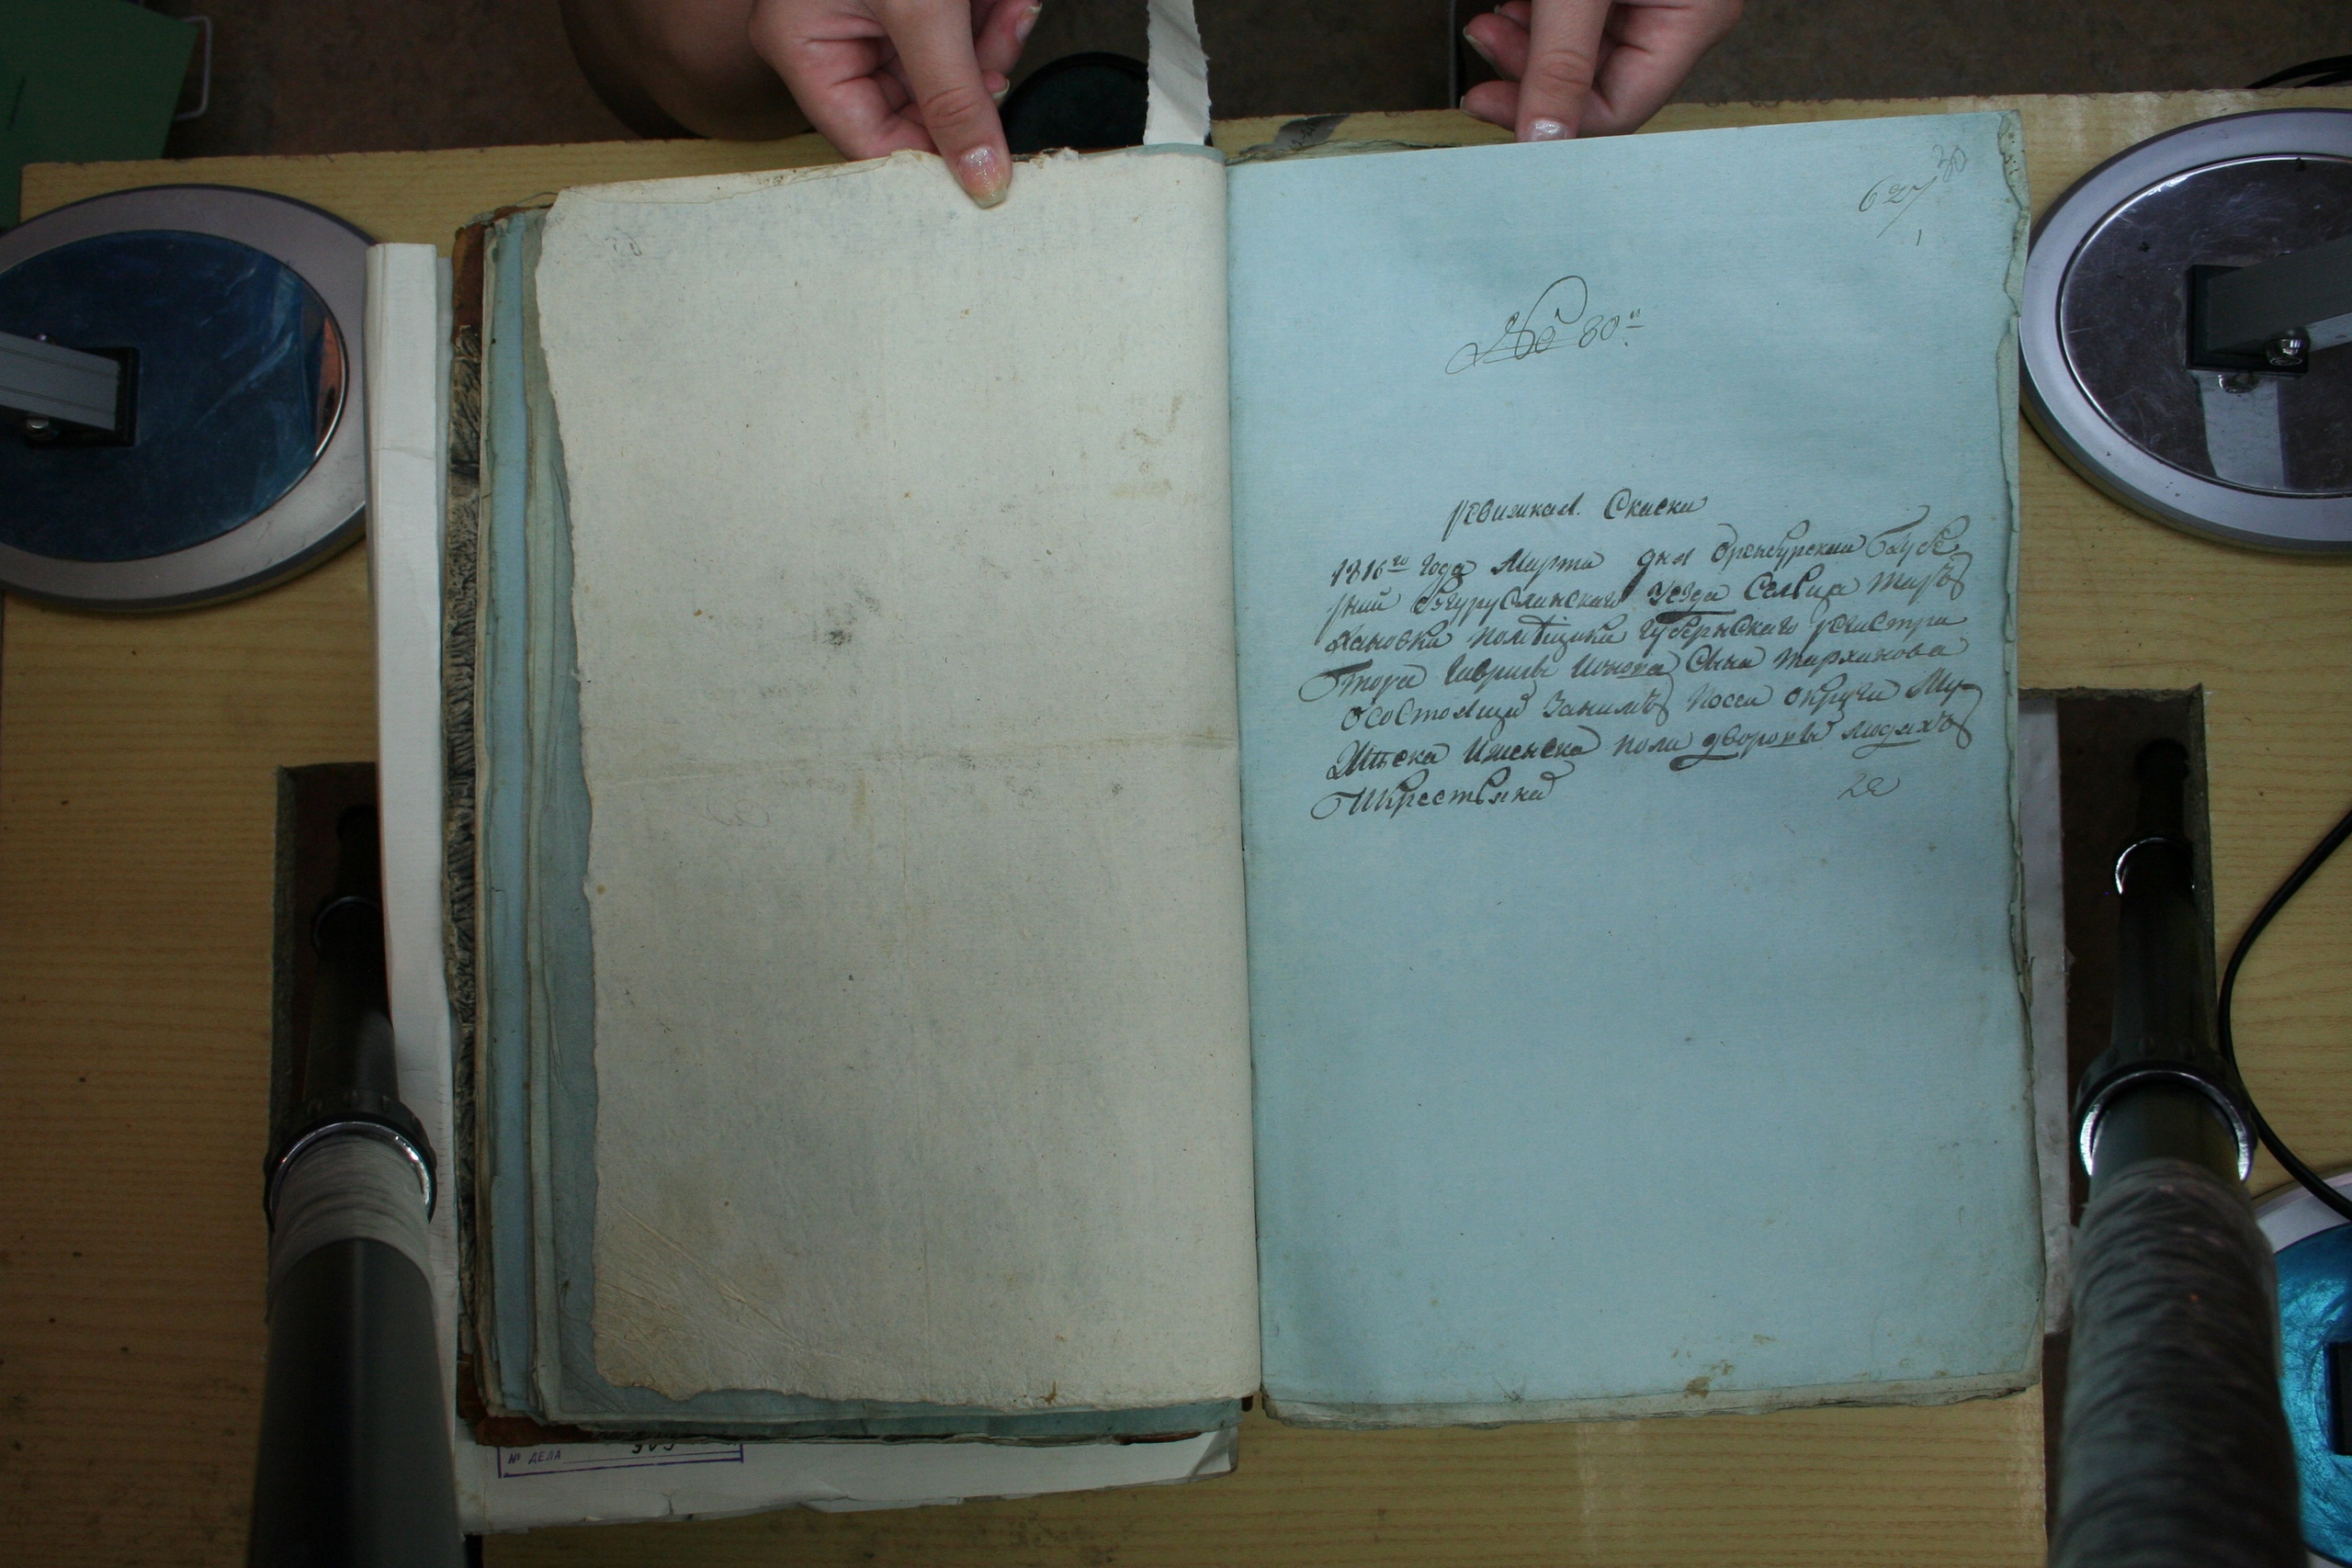 627/30
1
№ 80й
ревизкая. Скаска
1816го года Марта дня Оренбурскии Губе
рнии Бугурусланскаго Уезда Селъца Тарь
хановки помещика губернскаго регистра
тора Гаврилы сына Тарханова
о состоящей Занимъ После округи Му
жеска Иженска пола дворовы людяхъ
Икрестьяна
№ ДЕЛА